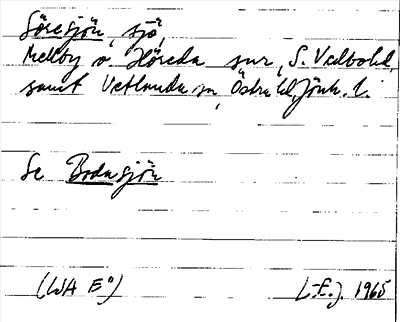 Söresjön, sjö,
Mellby o. Höreda snr, S. Vedbo hd,
samt Vetlanda sn, Östra hd, Jönk. l.
Se Bodasjön
(LSA E°)
L-E. J. 1965